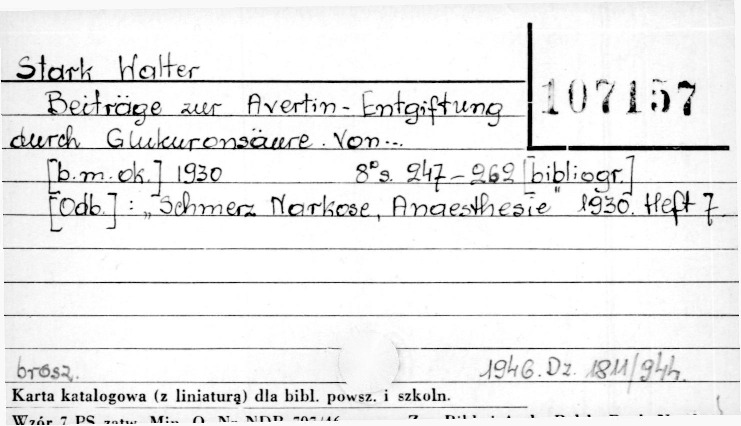 Stark Walter
107157
Beiträge zur Avertin-Entgiftung
durch Glukuronsäure. Von...
[b.m.ok.] 1930 8° s. 247-262 [bibliogr.]
[Odb.]: "Schmerz Narkose, Anaesthesie" 1930. Heft 7.
brosz. 1946. Dz. 1811/944.
Karta katalogowa (z liniaturą) dla bibl. powsz. i szkoln.
Wzór 7 PS zatw. Min. O. Nr NDP